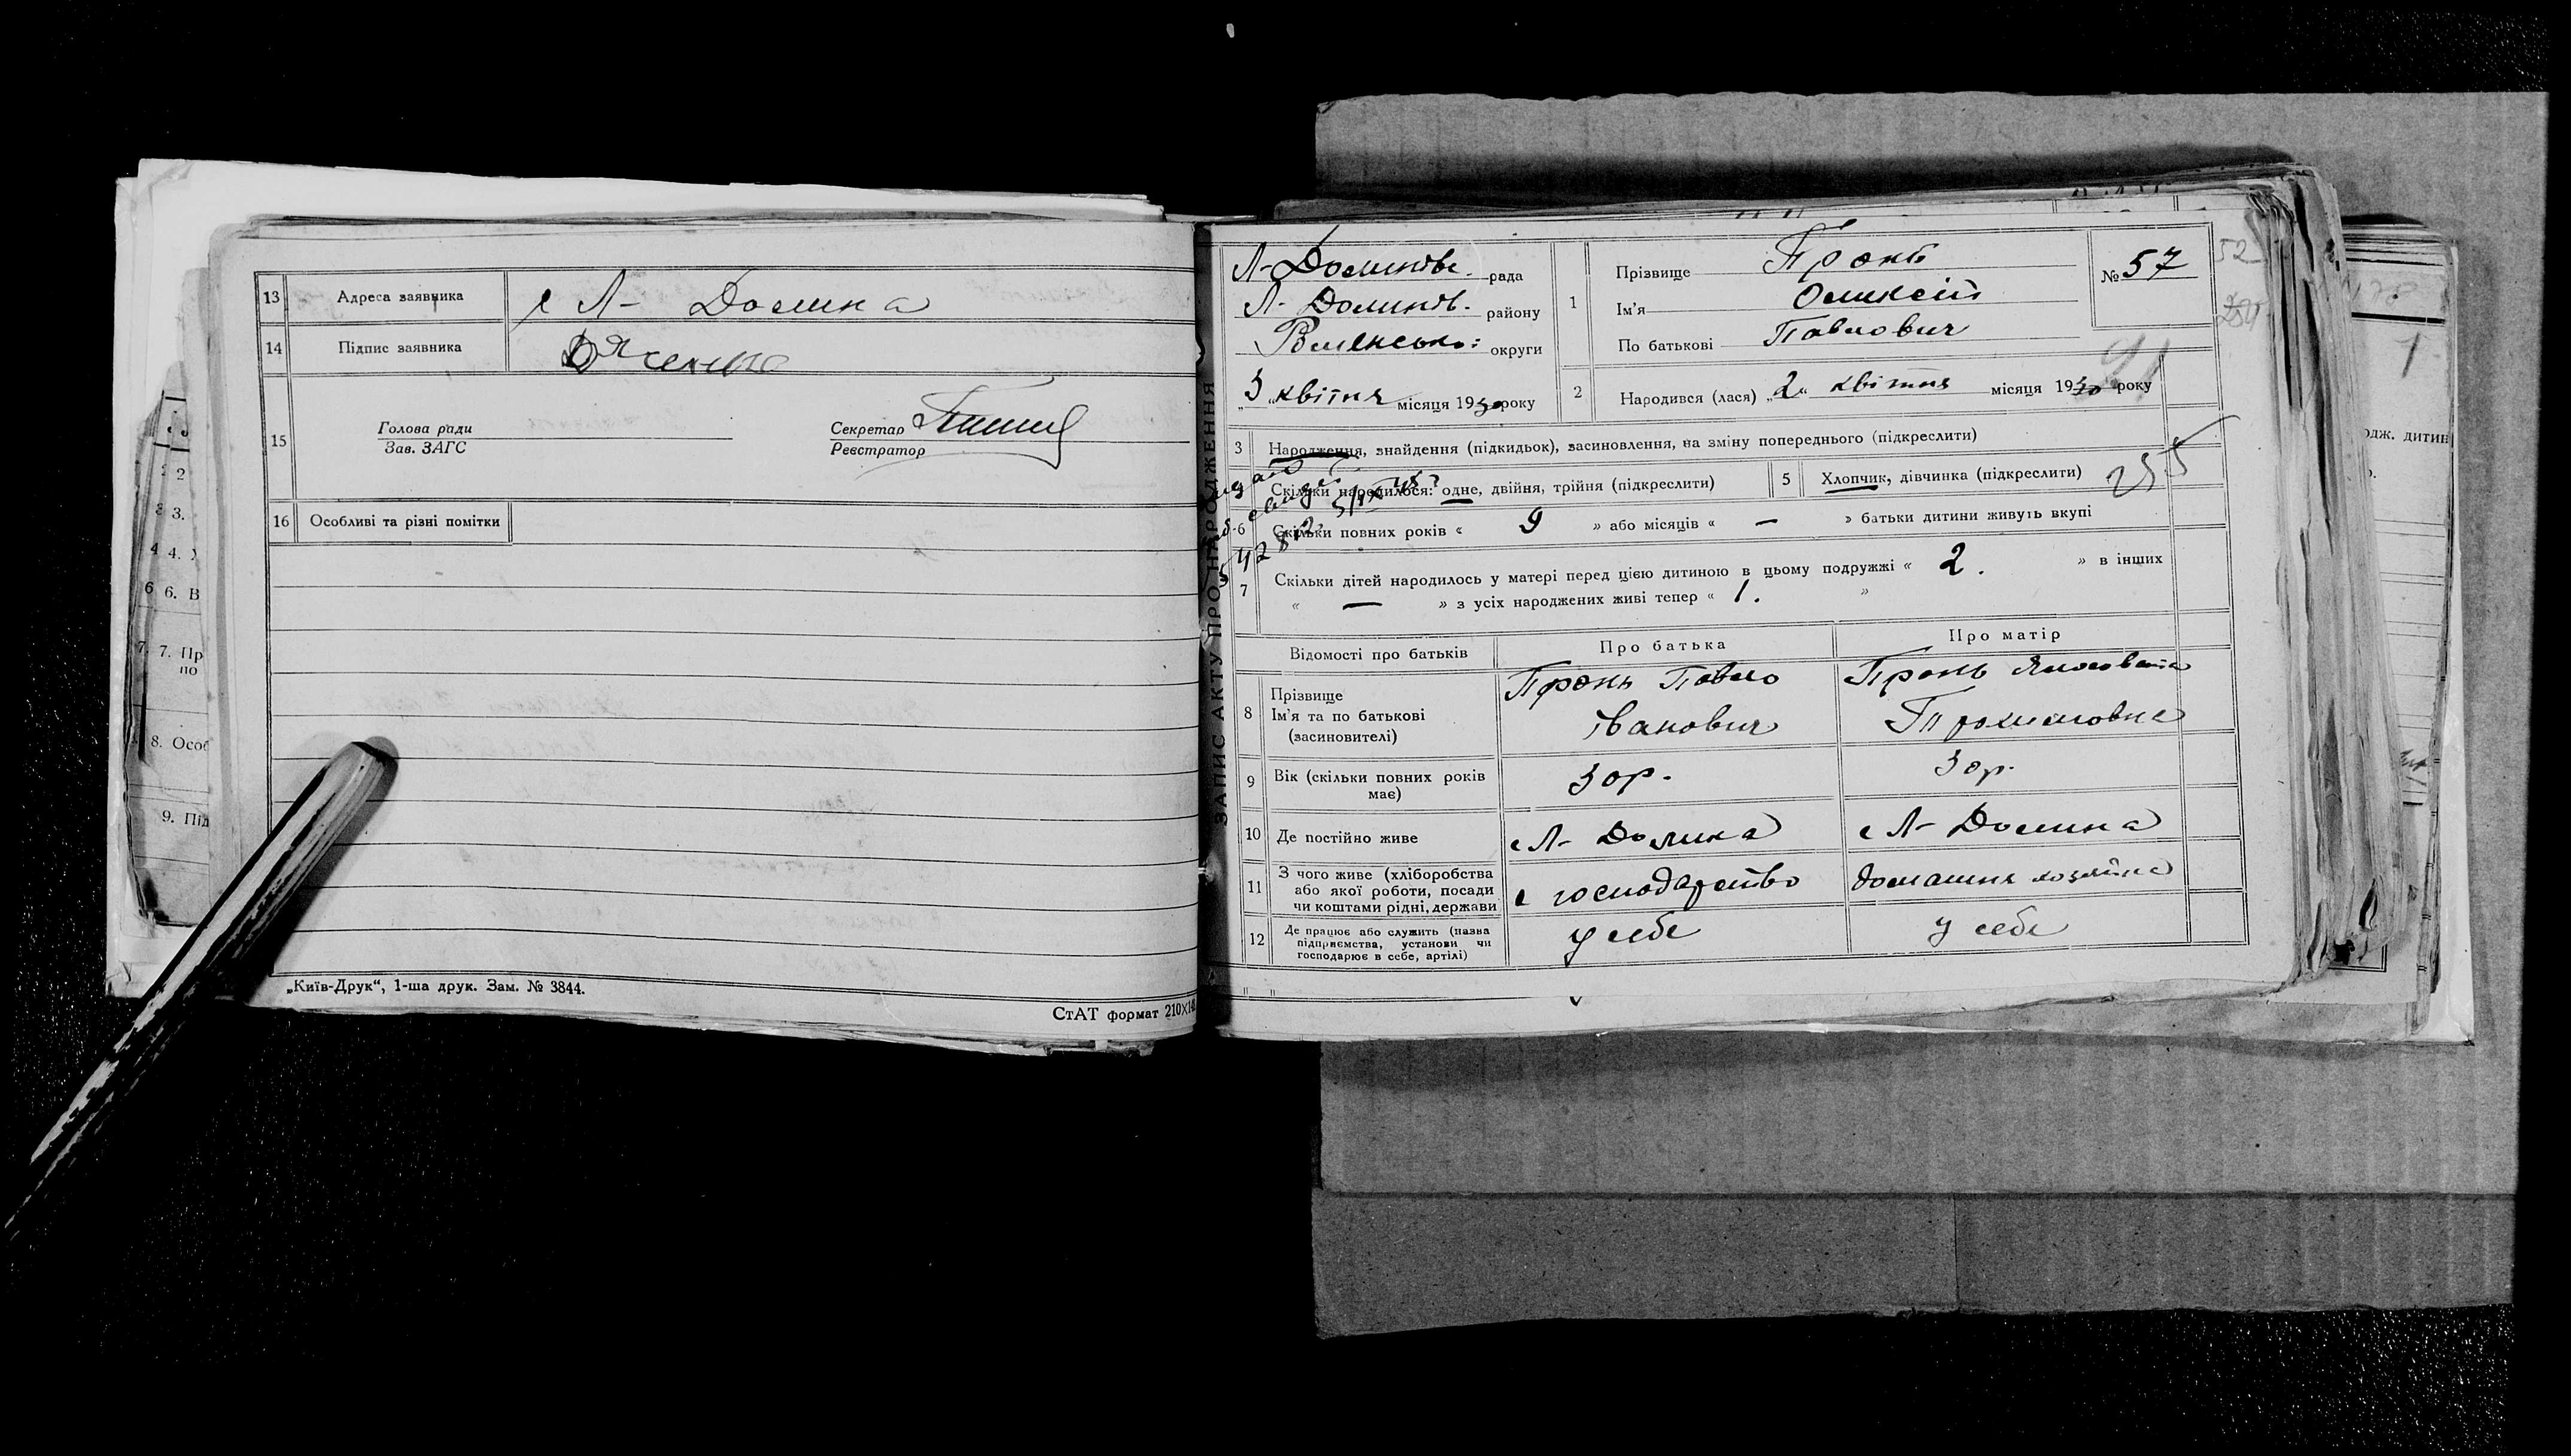 13 Адреса заявника с Л- Долина
14 Підпис заявника
15 Голова ради
Зав. ЗАГС
Секретар
Реєстратор
16 Особливі та різні помітки
„Київ-Друк“, 1-ша друк. Зам. № 3844.
СтАТ формат 210×14
2
3.
4 4.
6 6. В
7. 7. Пр
по
8. Особ
9. Під
ЗАПИС АКТУ ПРО НАРОДЖЕННЯ
Л-Долинівс. рада
Л-Долинів. району
округи
„3„ квітня місяця 1930 року
1 Прізвище Пронь
Ім'я Олексій
По батькові Павлович
№ 57
52
2 Народився (лася) „2“ квітня місяця 1930 року
3 Народження, знайдення (підкидьок), засиновлення, на зміну попереднього (підкреслити)
Скільки народилося: одне, двійня, трійня (підкреслити)
5 Хлопчик, дівчинка (підкреслити)
255
6 Скільки повних років « 9 » або місяців « — » батьки дитини живуть вкупі
7 Скільки дітей народилось у матері перед цією дитиною в цьому подружжі « 2. » в інших
« — » з усіх народжених живі тепер « 1. »
Відомості про батьків Про батька Про матір
8 Прізвище
Ім'я та по батькові
(засиновителі)
Пронь Павло
Іванович
Пронь
9 Вік (скільки повних років
має)
30р. 30р.
10 Де постійно живе с Л- Долина с Л- Долина
11 З чого живе (хліборобства
або якої роботи, посади
чи коштами рідні, держави
с господарство
домашня хозяйка
12 Де працює або служить (назва
підприємства, установи чи
господарює в себе, артілі)
у себе у себе
одж. дитин